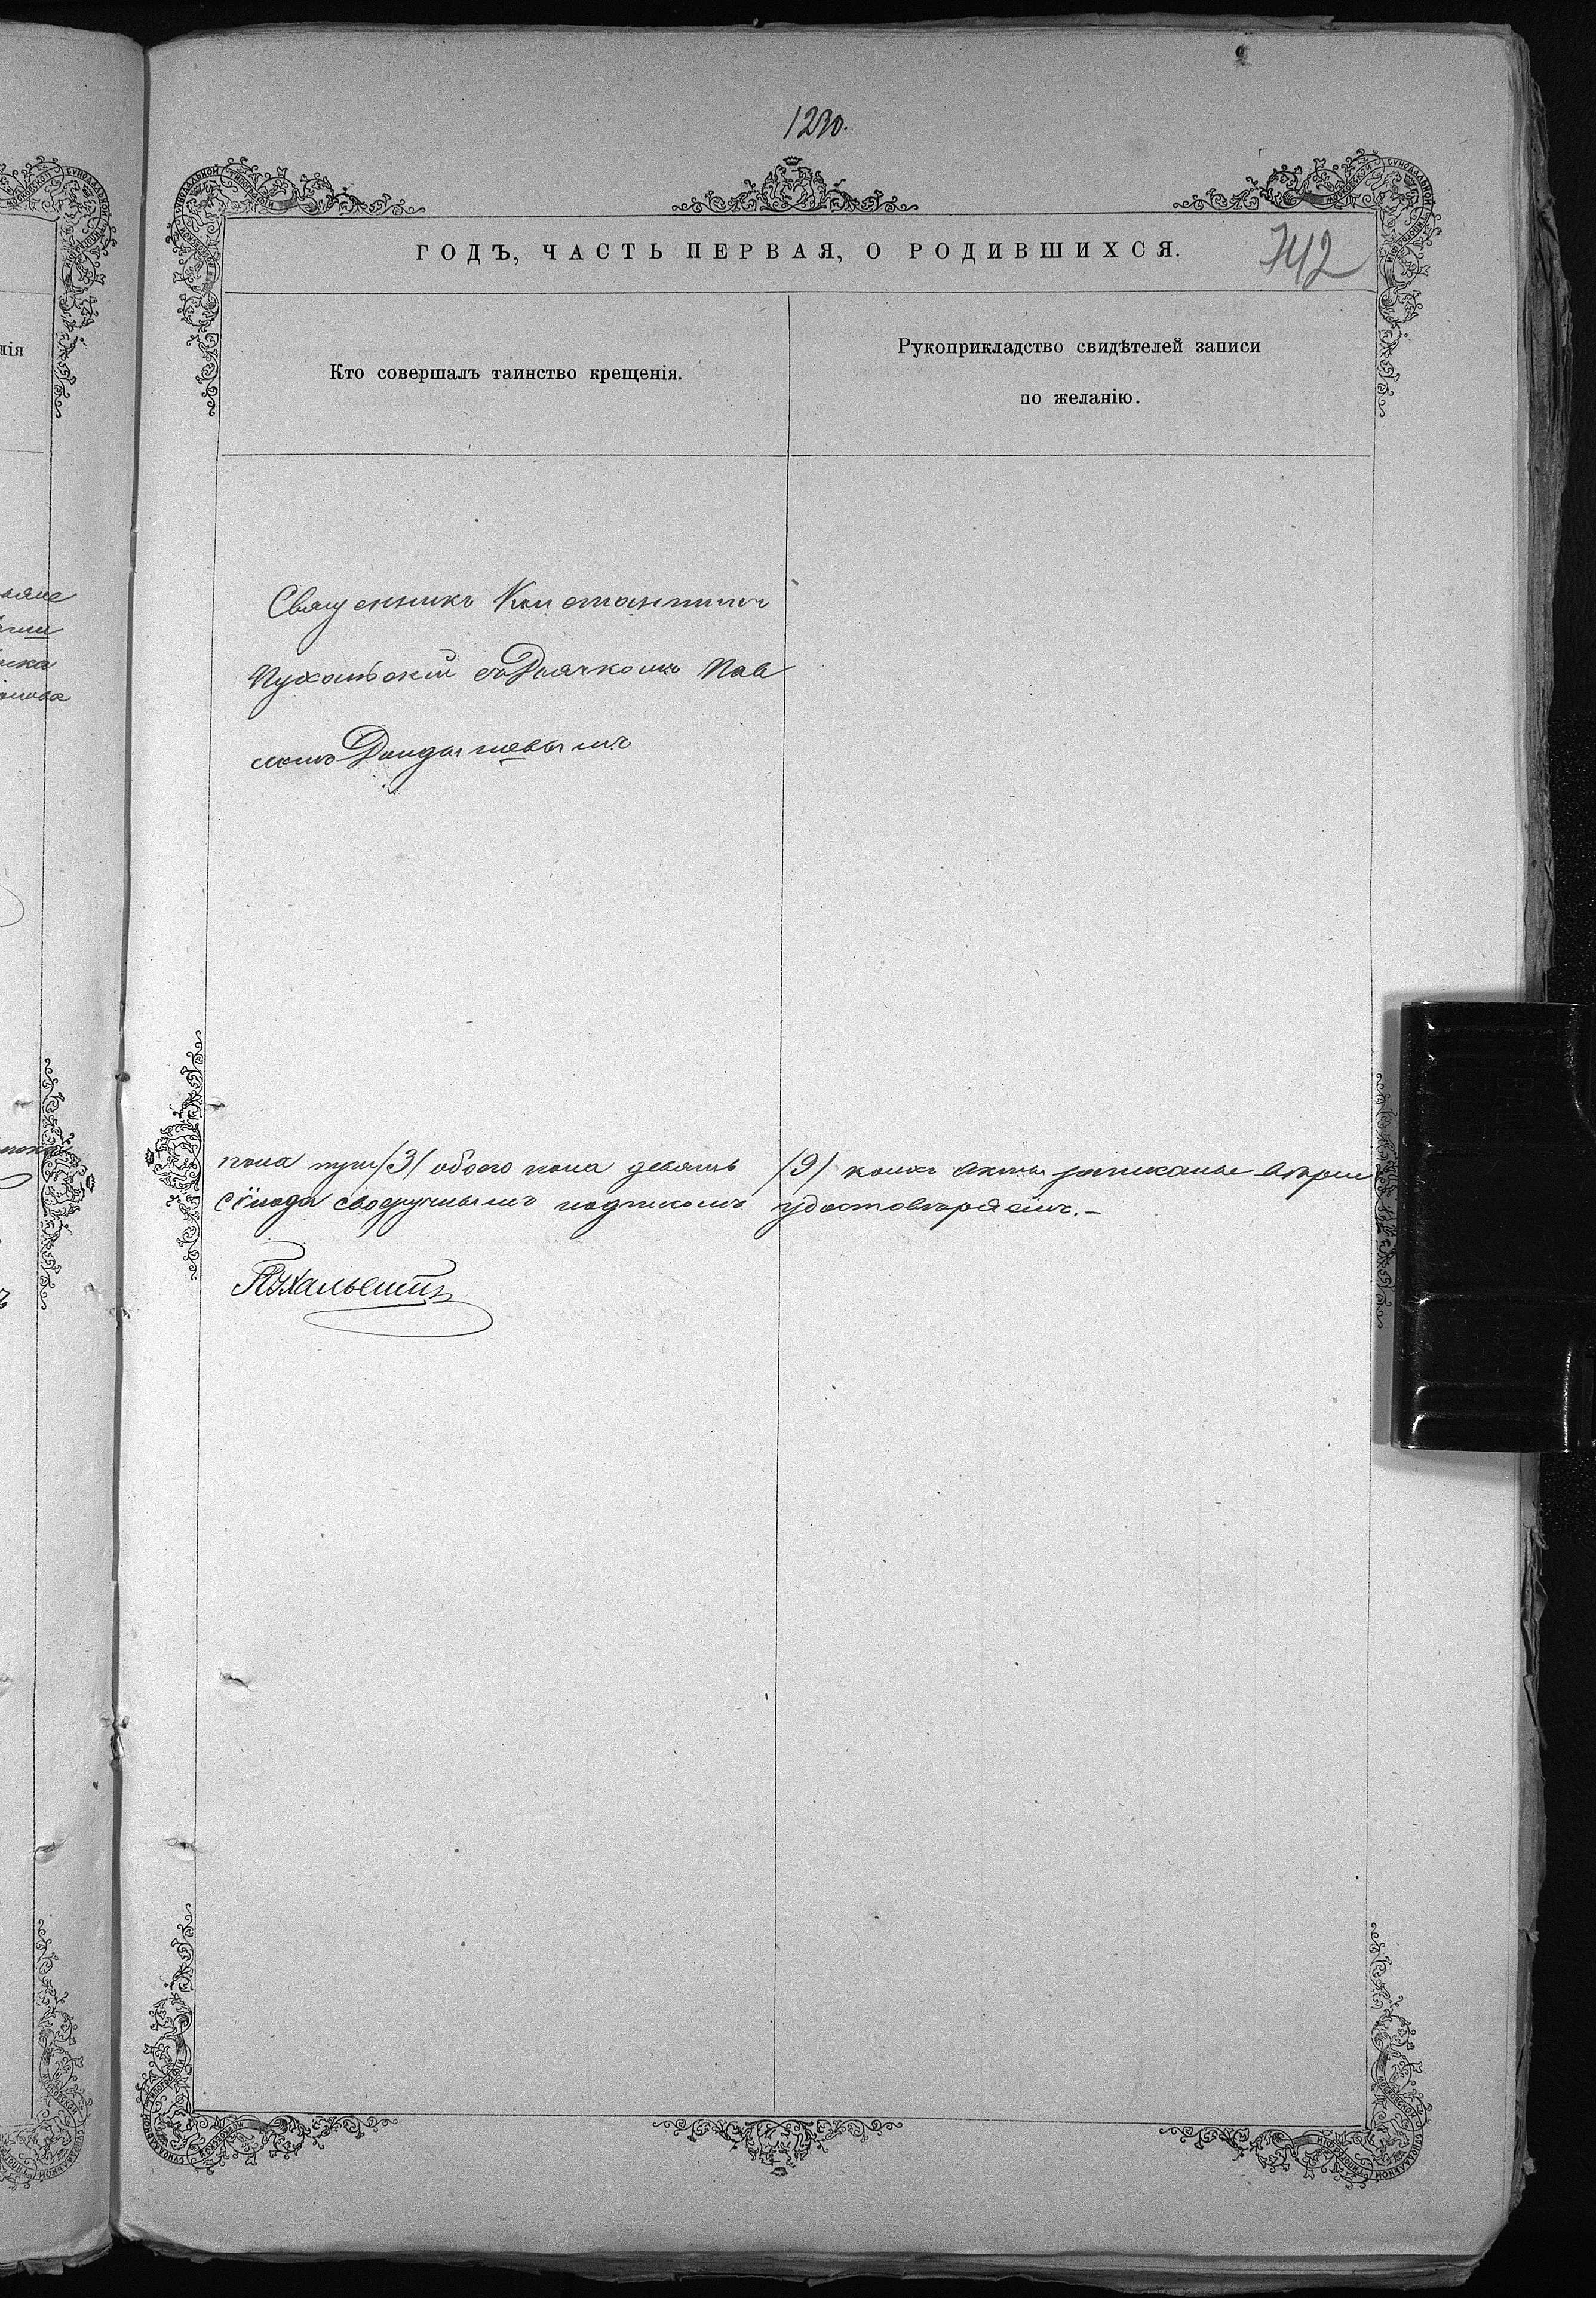 1230.
ГОДЪ, ЧАСТЬ ПЕРВАЯ, О РОДИВШИХСЯ.
742
Кто совершалъ таинство крещенія.
Рукоприкладство свидѣтелей записи
по желанію.
Священникъ Константинъ
Пухальскій съ Дьячкомъ Пав
ломъ
пола три /3/ обоего пола девять /9/ коихъ акты записаны вѣрно
сѵнода своеручнымъ подписомъ удостовѣряемъ.-
Пухальскій